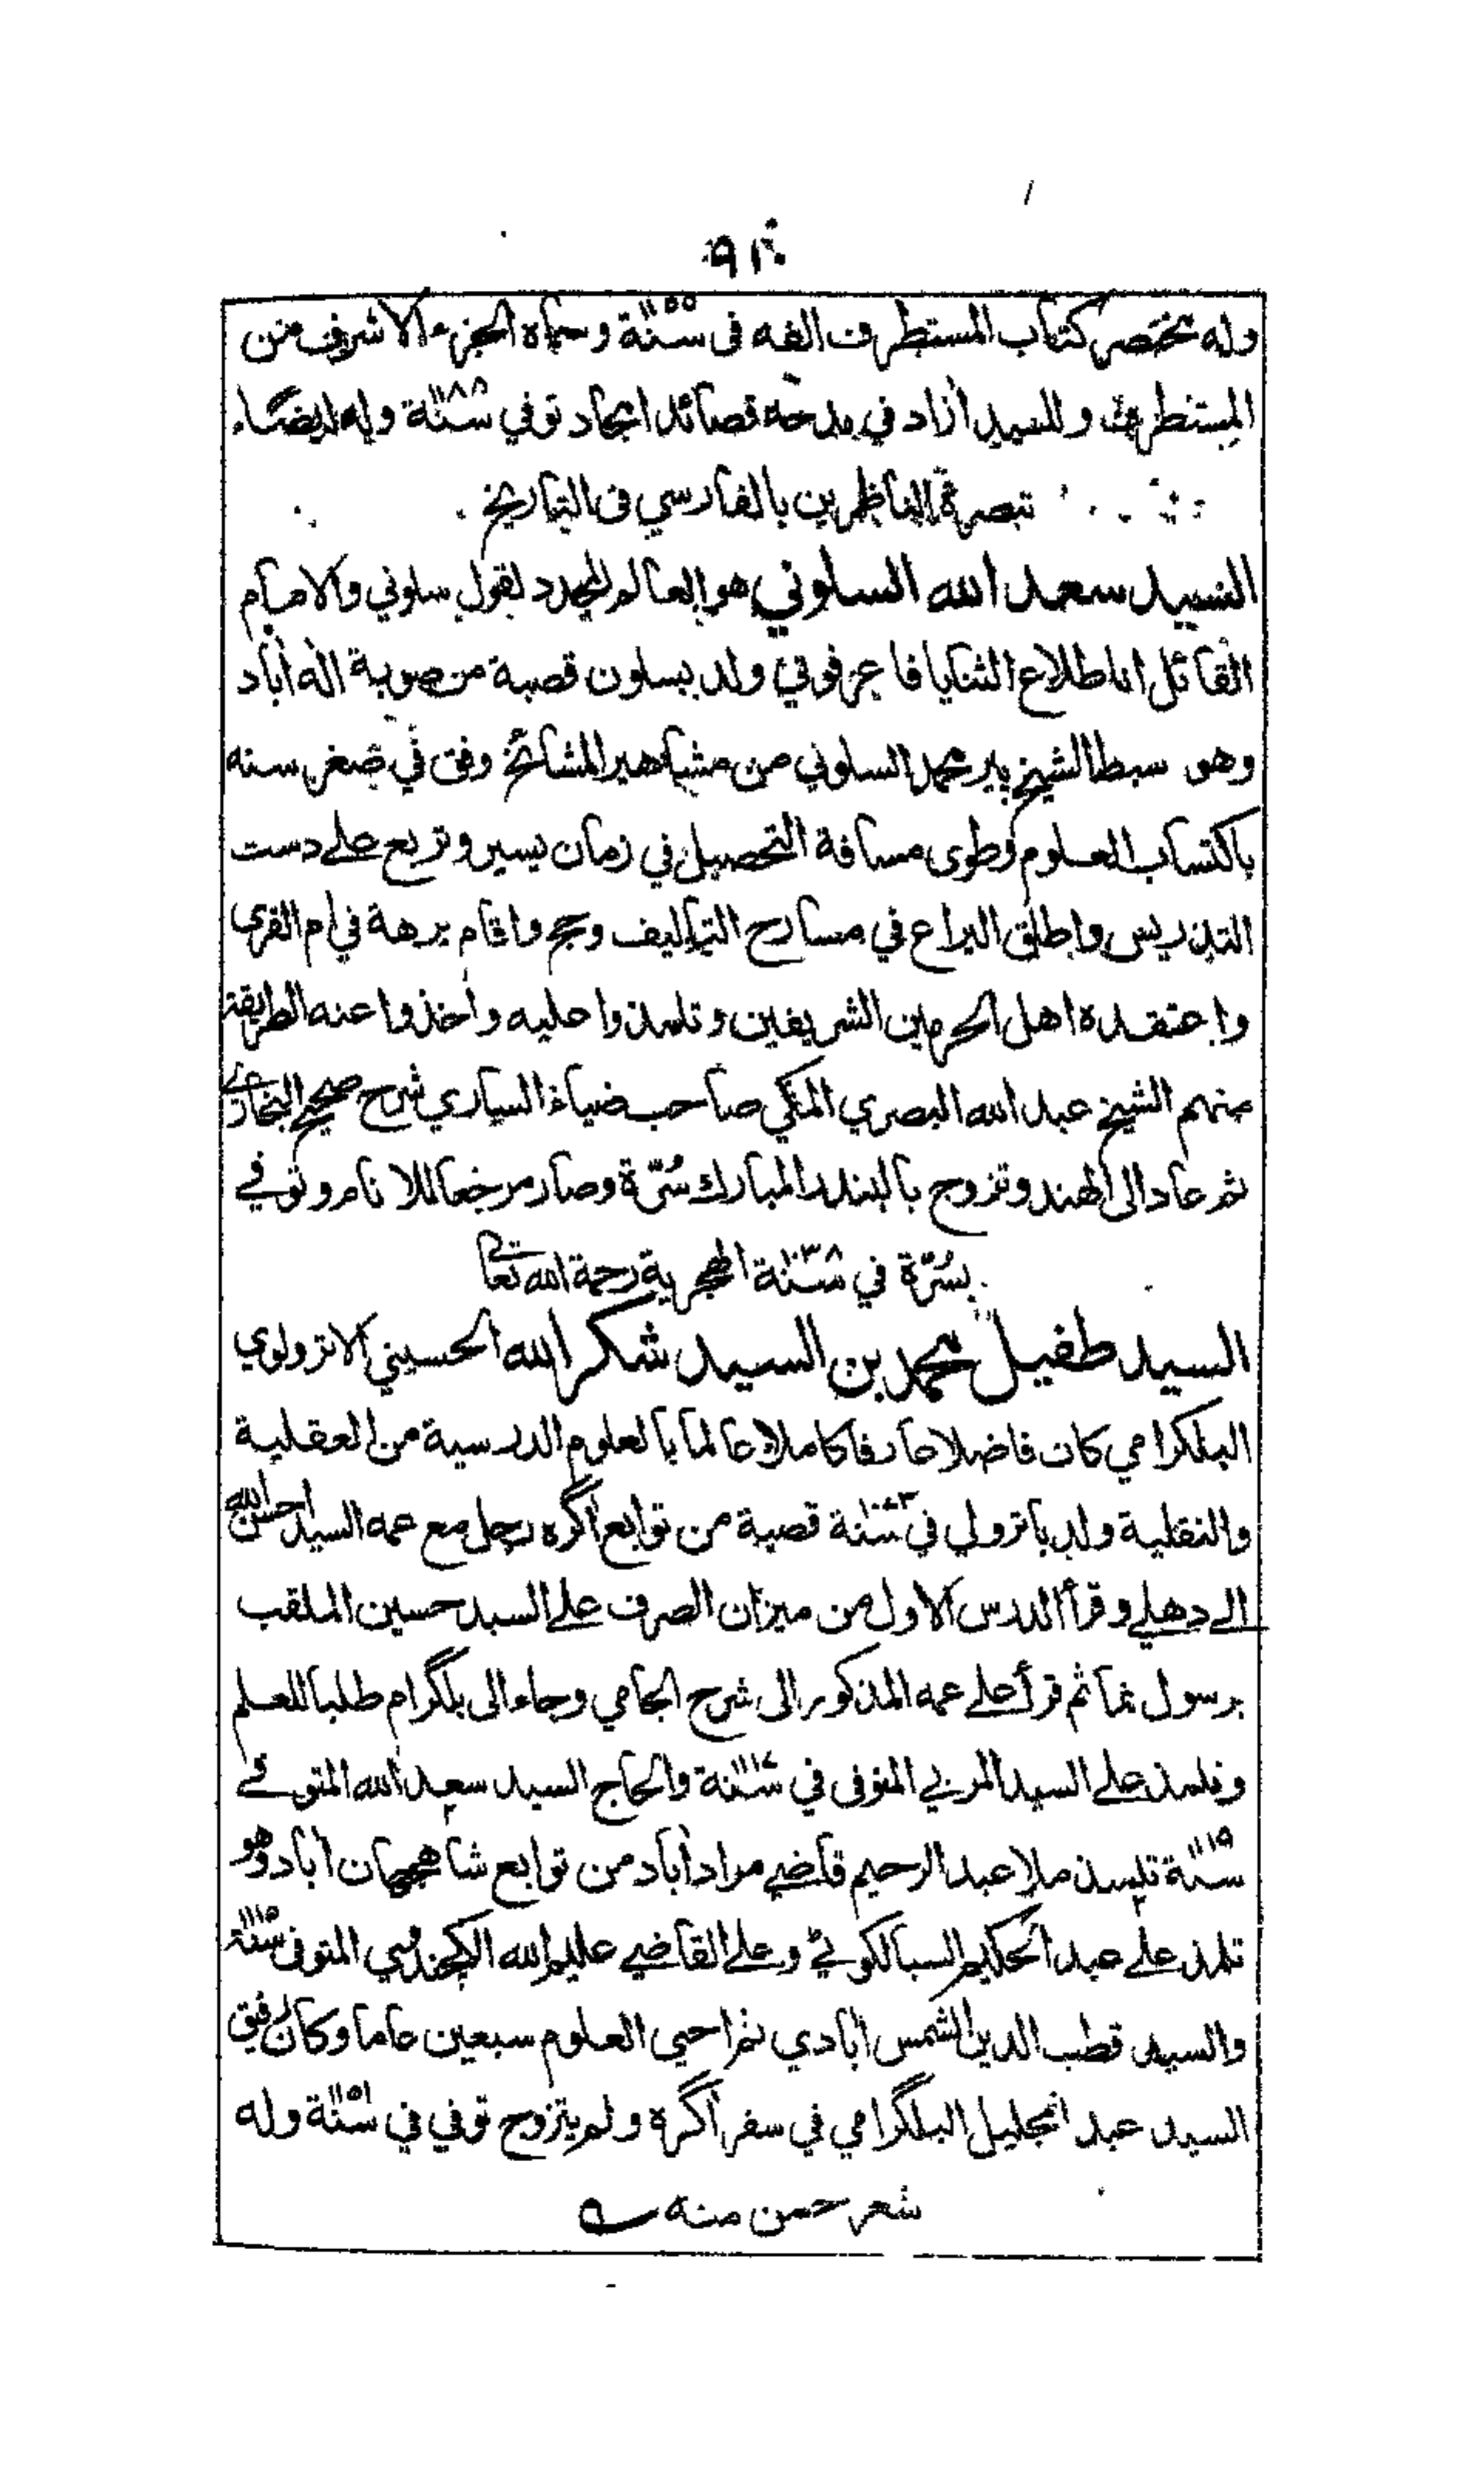 ٩١٠
وله مختصر كتاب المستطرف الفه في سنة ١١٥٥ وسماه الجزء الاشرف من
المستطرف وللسيد آزاد في مدحه قصائد اجاد توفي سنة ١١٨٨ وله ايضا
تبصرة الناظرين بالفارسي في التاريخ
السيد سعد الله السلوني هو العالم المجدد لقول سلوني والامام
القائل انا طلاع الثنايا فاعرفوني ولد بسلون قصبة من صوبة اله آباد
وهو سبط الشيخ پير محمد السلوني من مشاهير المشائخ وفق في صغر سنه
باكتساب العلوم وطوى مسافة التحصيل في زمان يسير وتربع على دست
التدريس واطلق اليراع في مسارح التاليف وحج واقام برهة في ام القرى
واعتقده اهل الحرمين الشريفين وتلمذوا عليه واخذوا عنه الطريقة
منهم الشيخ عبد الله البصري المكي صاحب ضياء الساري شرح صحيح البخاري
ثم عاد الى الهند وتزوج بالبندر المبارك سُرّة وصار مرجعا للانام وتوفي
بسُرّة في سنة ١١٣٨ الهجرية رحمة الله تعا
السيد طفيل محمد بن السيد شكر الله الحسيني الاترولوي
البلگرامي كان فاضلا عارفا كاملا عالما بالعلوم الدرسية من العقلية
والنقلية ولد باترولي في سنة ١٠٧٣ قصبة من توابع آگره رحل مع عمه السيد احسن الله
الى دهلي وقرأ الدرس الاول من ميزان الصرف على السيد حسين الملقب
برسول نما ثم قرأ على عمه المذكور الى شرح الجامي وجاء الى بلگرام طلبا للعلم
وتلمذ على السيد المربي المتوفى في سنة ١١١٧ والحاج السيد سعد الله المتوفى
سنة ١١١٩ تلميذ ملا عبد الرحيم قاضي مراد آباد من توابع شاهجهان آباد وهو
تلمذ على عبد الحكيم السيالكوتي وعلى القاضي عليم الله الكچندوي المتوفى سنة ١١١٥
والسيد قطب الدين الشمس آبادي ثم احيى العلوم سبعين عاما وكان رفيق
السيد عبد الجليل البلگرامي في سفر آگرة ولم يتزوج توفي في سنة ١١٥١ وله
شعر حسن منه